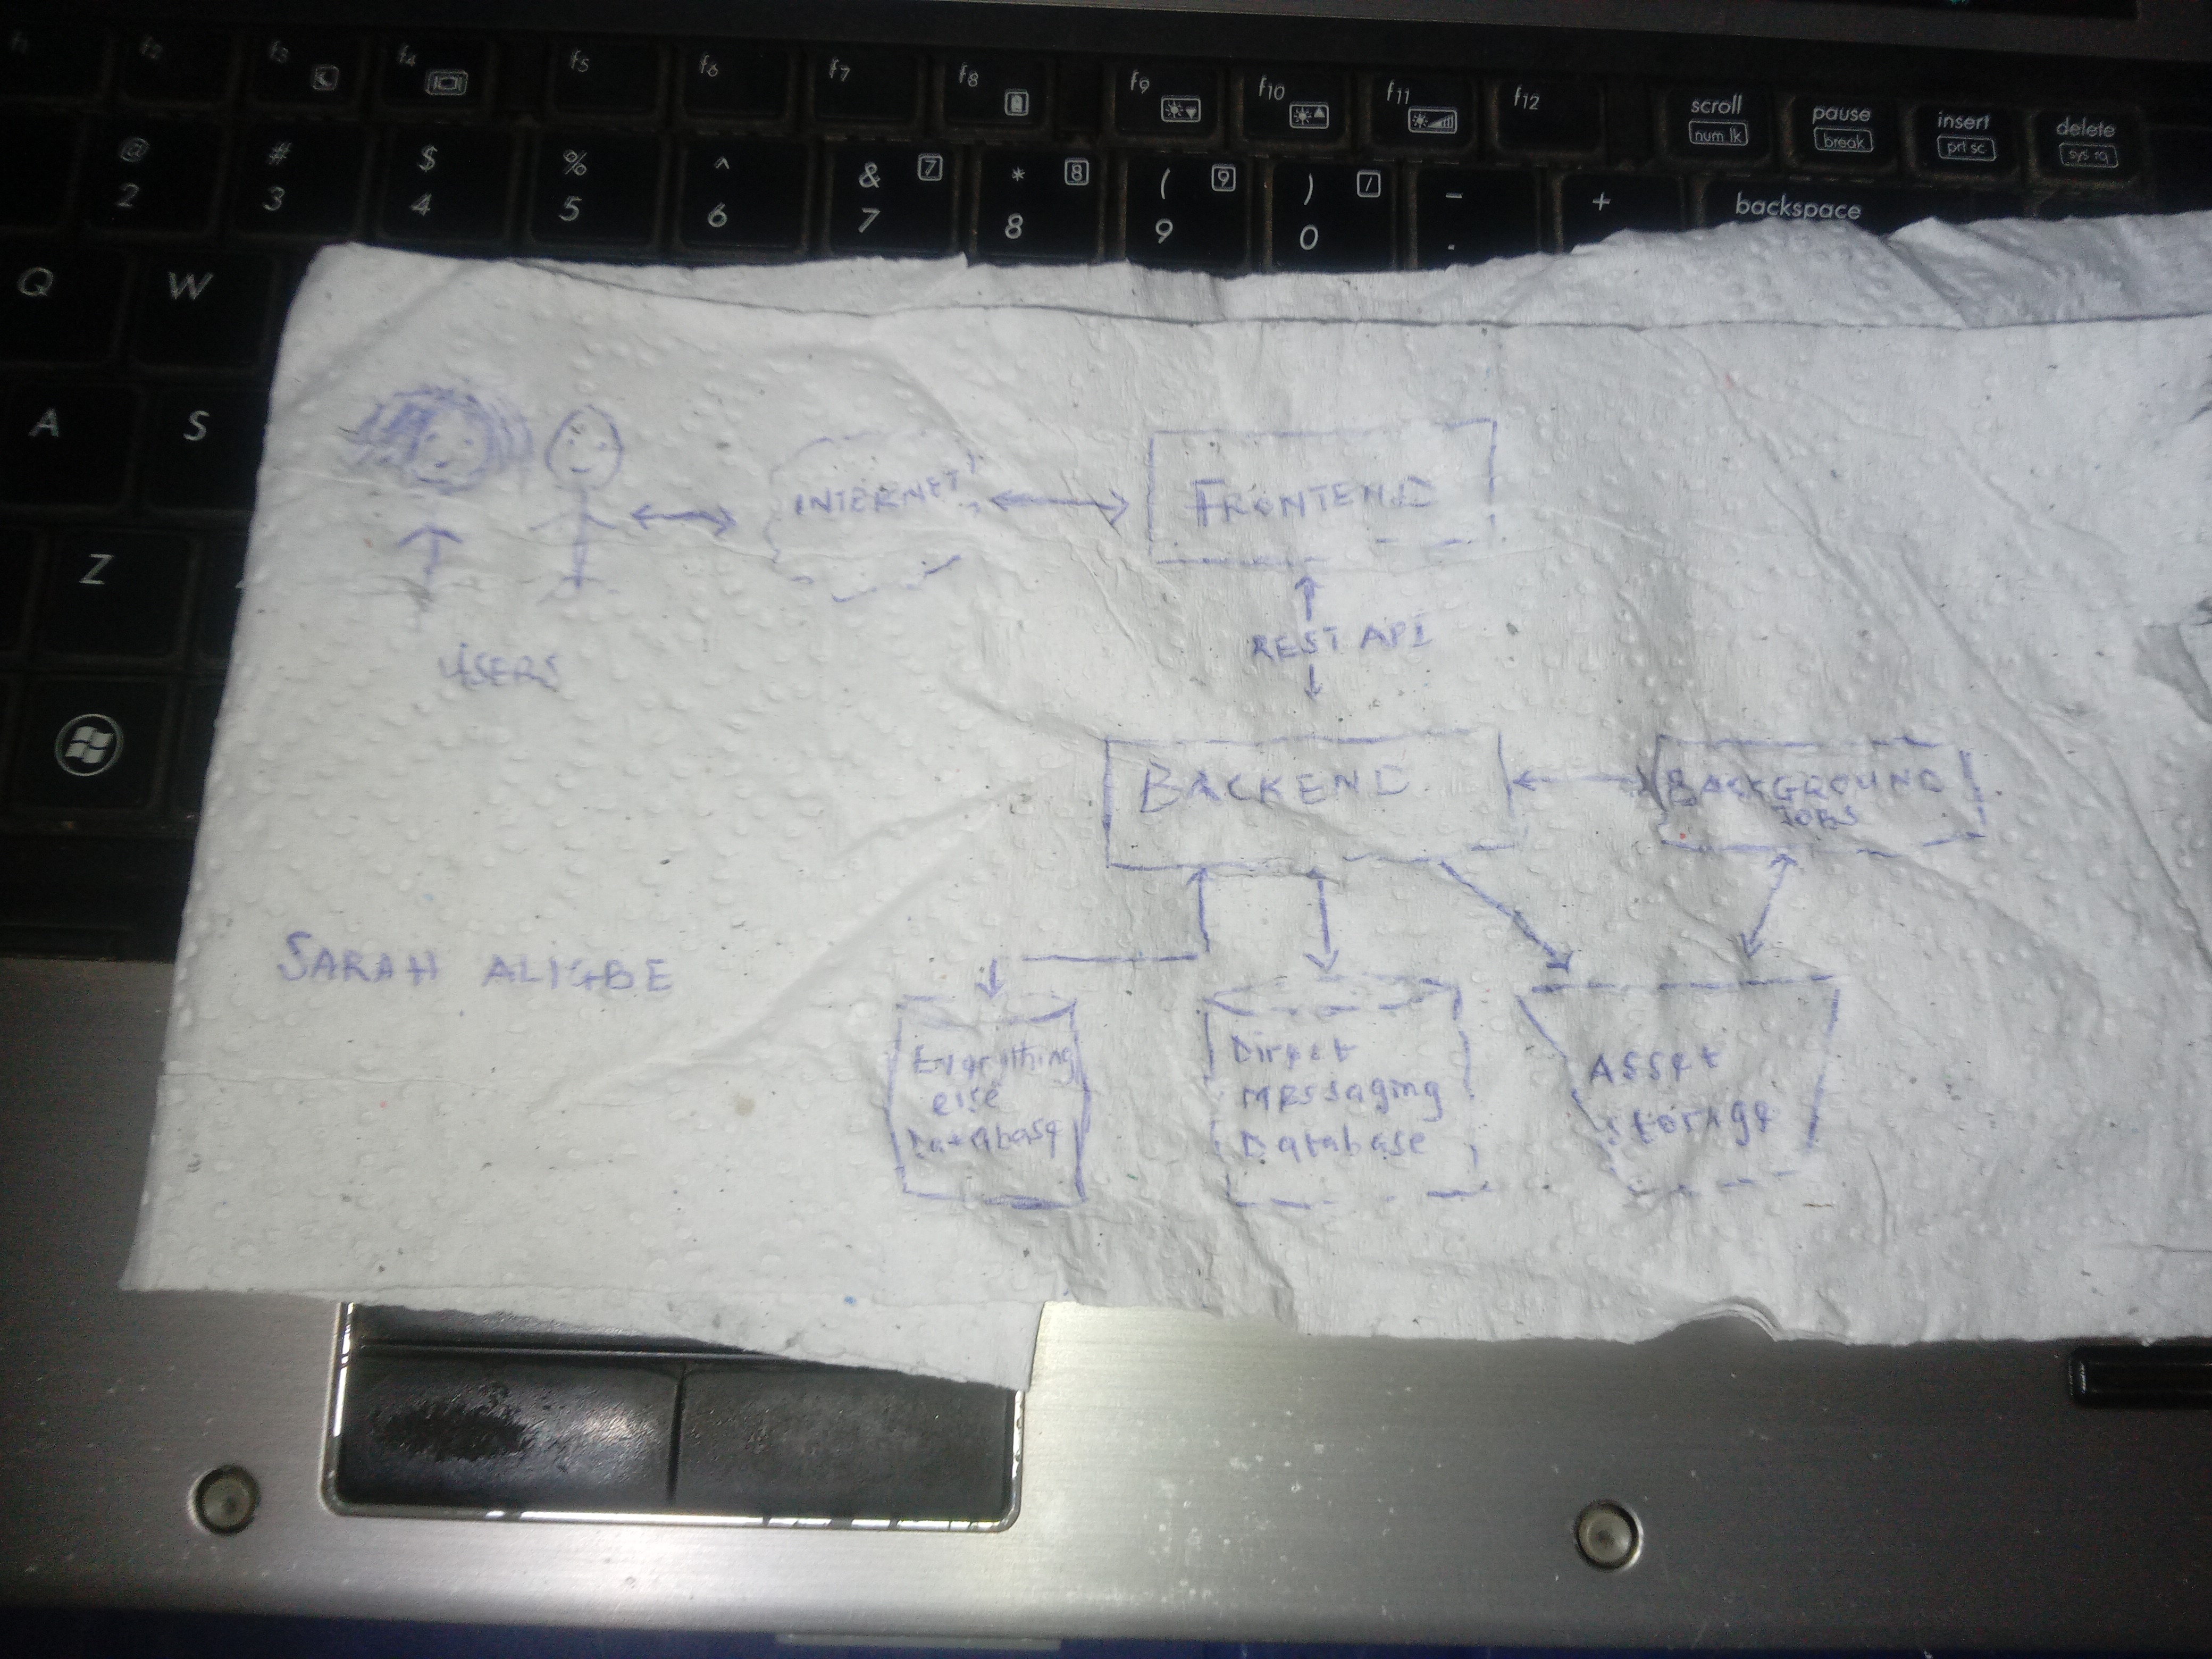 f1 f2 f3 f4 f5 f6 f7 f8 f9 f10 f11 f12
scroll
num lk
pause
break
insert
prt sc
delete
sys rq
@ # $ % ^ & 7 * 8 ( 9 ) / - +
2 3 4 5 6 7 8 9 0
backspace
Q W
A S
Z
INTERNET
FRONTEND
REST API
USERS
BACKEND
BACKGROUND
JOBS
SARAH ALIGBE
Everything
else
Database
Direct
messaging
Database
Asset
storage